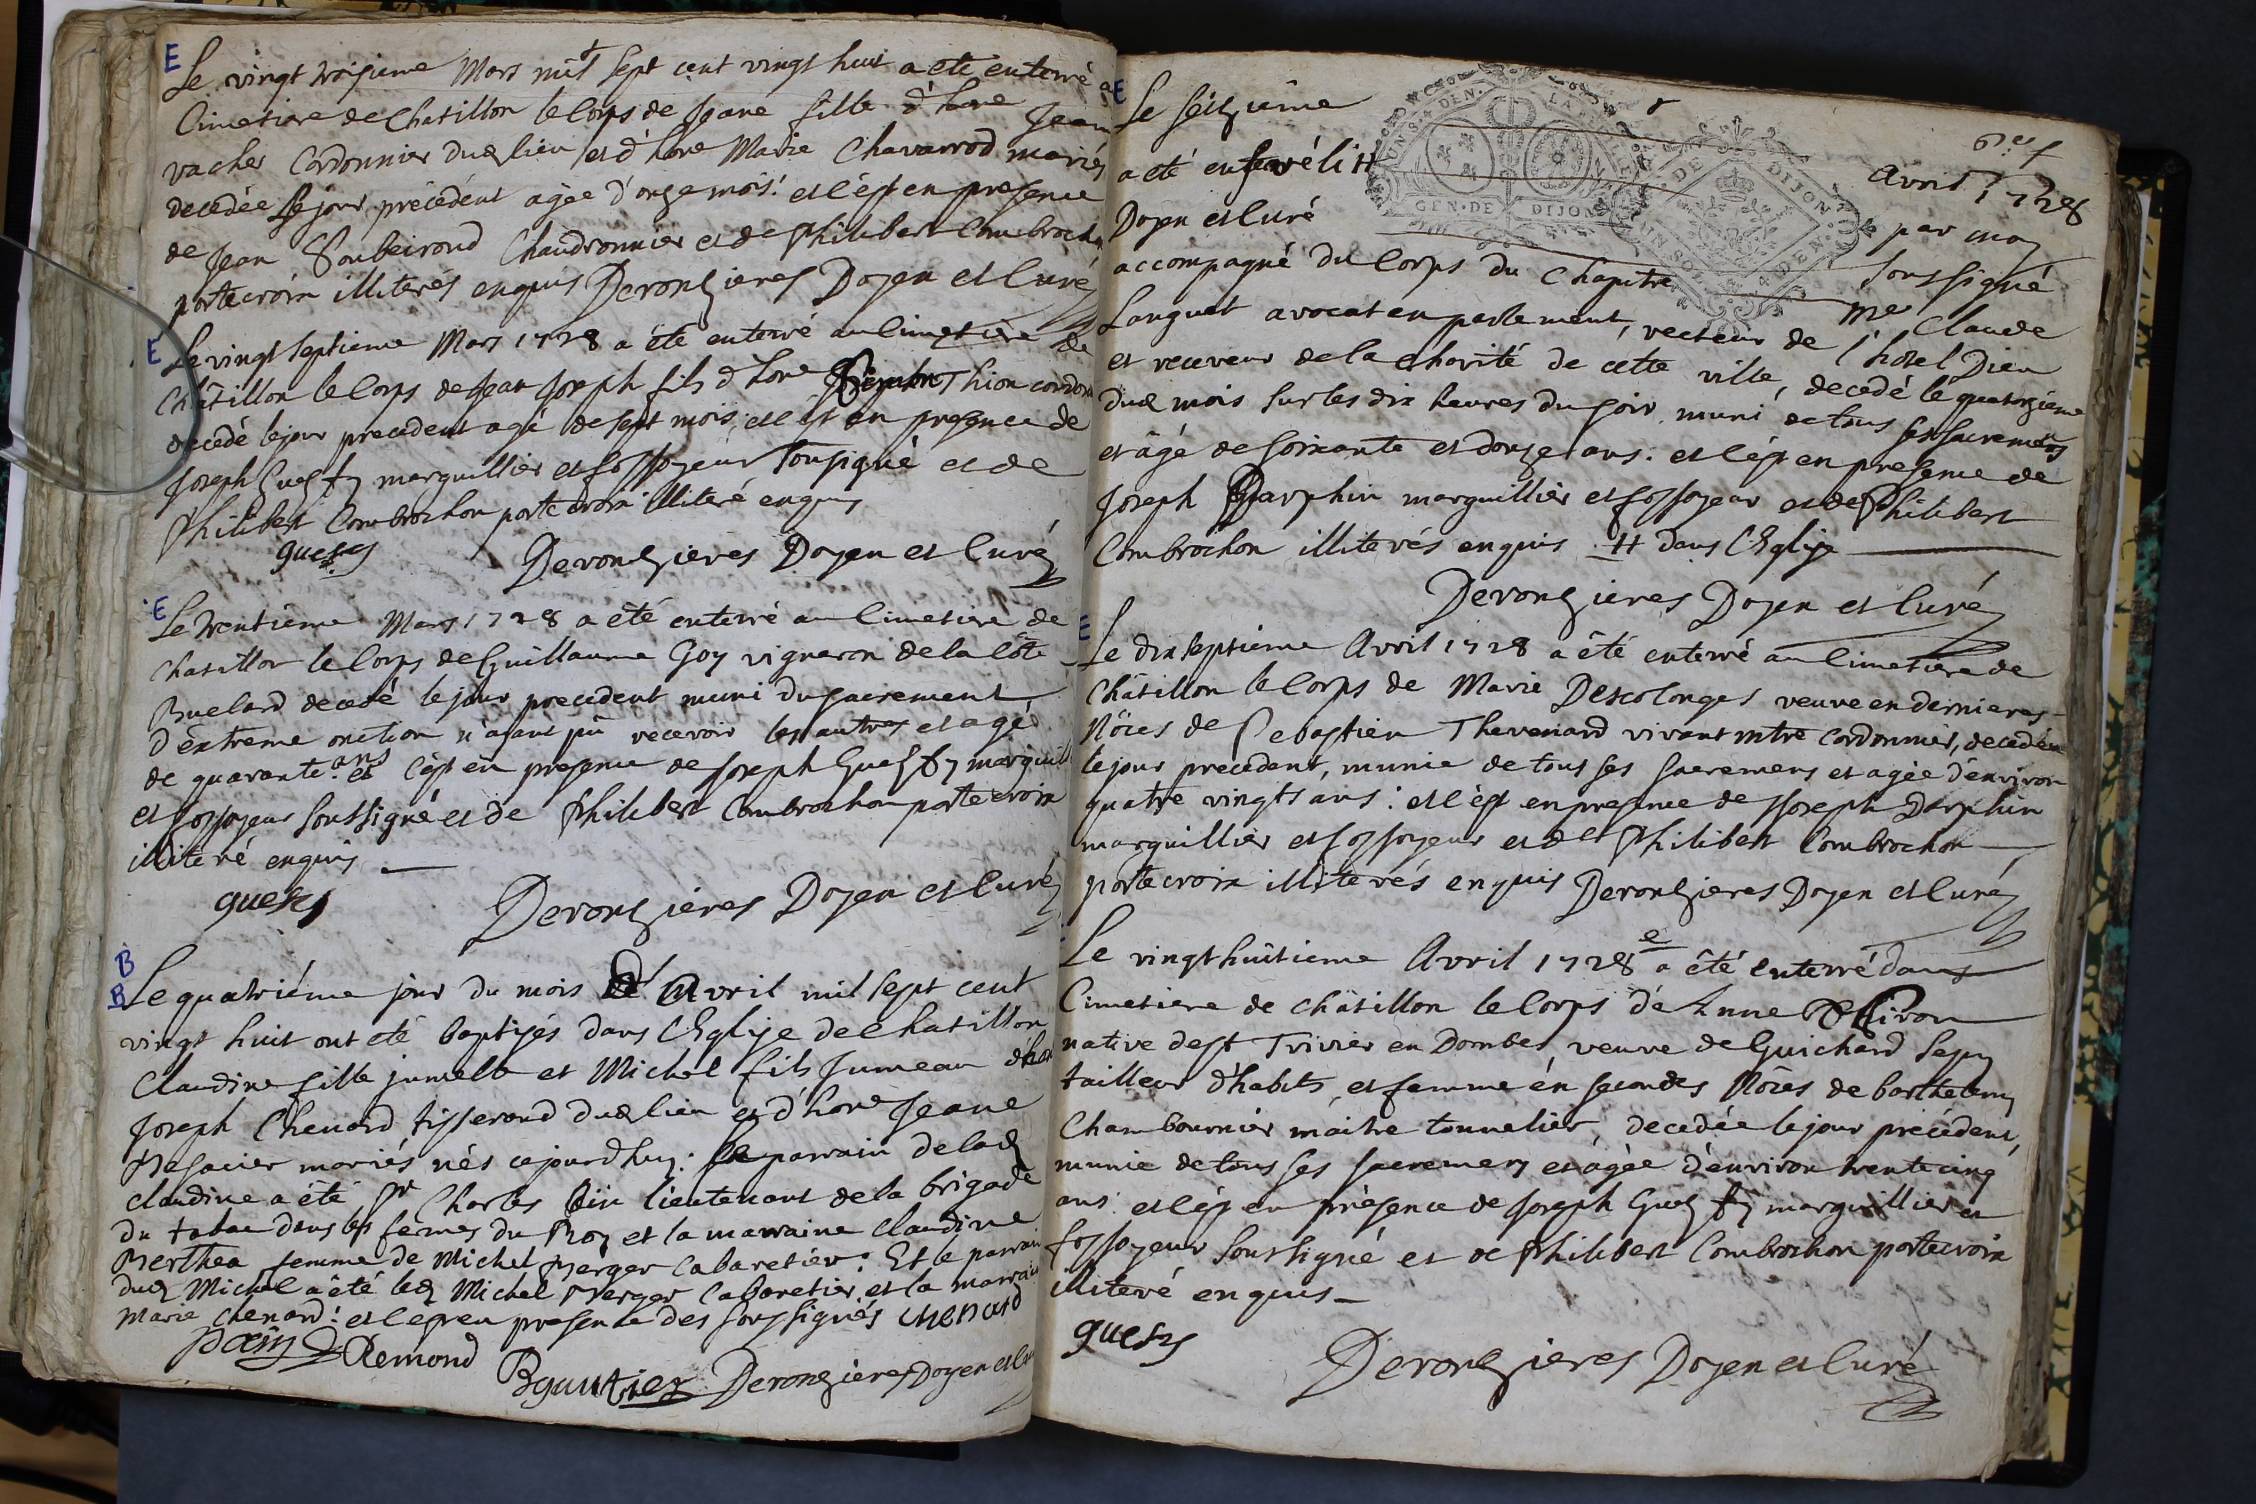 E
Le vingt troisieme Mars mil sept cent vingt huit a eté enterré a
Cimetiere de Chatillon le Corps de Jeane fille d'hone Jean
vacher Cordonnier dud lieu et d'hone Marie Chavarrod mariés
decedée le jour précédent agée d'onze mois: et c'est en presence
de Jean Soubeirond Chaudronnier et de Philibert Combrochon
portecroix illiterés enquis Deronzieres Doyen et Curé
E
Le vingt septieme Mars 1728 a été enterré au Cimetiere de
Châtillon le Corps de Jean Joseph fils d'hone Thion cordon
decedé le jour precedent agé de sept mois, et c'est en presence de
Joseph marguillier et fossoyeur sousigné et de
Philibert Combrochon porte croix illiteré enquis
Deronzieres Doyen et Curé
E
Le trentiéme Mars 1728 a été enterré au Cimetiere de
chatillon le Corps de Guillaume Goy vigneron de la Côte
Buelard decedé le jour precedent muni du sacrement
d'extreme onction n'ajant pû recevoir les autres et agé
de quarante ans et c'est en presence de Joseph marguill
et fossoyeur soussigné et de Philibert Combrochon porte croix
illiteré enquis
Deronzieres Doyen et Curé
B
B
Le quatriéme jour du mois d'Avril mil sept cent
vingt huit ont eté baptisés dans l'Eglise de Chatillon
Claudine fille jumelle et Michel fils Jumeau d'hon
Joseph Chenard tisserand dud lieu et d'hone Jeane
mariés nés cejourdhuy: le parrain de lad
claudine a été Sr Charles lieutenant de la brigade
du tabac dans les fermes du Roy et la marraine claudine
Berthea femme de Michel Berger Cabaretier: Et le parrain
dud Michel a été led Michel Berger Cabaretier et la marrain
Marie Chenard: et c'est en presence des soussignés chenard
Remond
Bgautier Deronzieres Doyen et Cu
E
Le seizieme avril 1728
a eté enseveli H par moy
Doyen et Curé soussigné
GEN · DE DIJON
DE DIJON
UN SOL 4 DEN.
accompagné du Corps du Chapitre Me Claude
Languet avocat en parlement, recteur de l'hotel Dieu
et receveur de la charité de cette ville, decedé le quatorzieme
dud mois sur les dix heures du soir muni de tous ses sacremens
et âgé de soixante et douze ans: et c'est en presence de
Joseph Darphin marguillier et fossoyeur et de Philibert
Combrochon illiterés enquis H dans l'Eglise
Deronzieres Doyen et Curé
E
Le dixseptieme Avril 1728 a êté enterré au Cimetiere de
Châtillon le Corps de Marie Descolonges veuve en dernieres
Nôces de Sebastien Thevenard vivant mtre cordonnier, decedée
le jour precedent, munie de tous ses sacremens et agée d'environ
quatre vingts ans: et c'est en presence de Joseph Darphin
marguillier et fossoyeur et de Philibert Combrochon
portecroix illiterés enquis Deronzieres Doyen et Curé
Le vingt huitieme Avril 1728 a êté enterré dans
Cimetiere de châtillon le Corps d'Anne
native de St Trivier en Dombes, veuve de Guichard
tailleur d'habits, et femme en secondes Nôces de barthelemy
Chambournier maitre tonnelier, decedée le jour précédent,
munie de tous ses sacremens et agée d'environ trente cinq
ans: et c'est en présence de Joseph marguillier et
fossoyeur soussigné et de Philibert Combrochon portecroix
illiteré enquis
Deronzieres Doyen et Curé